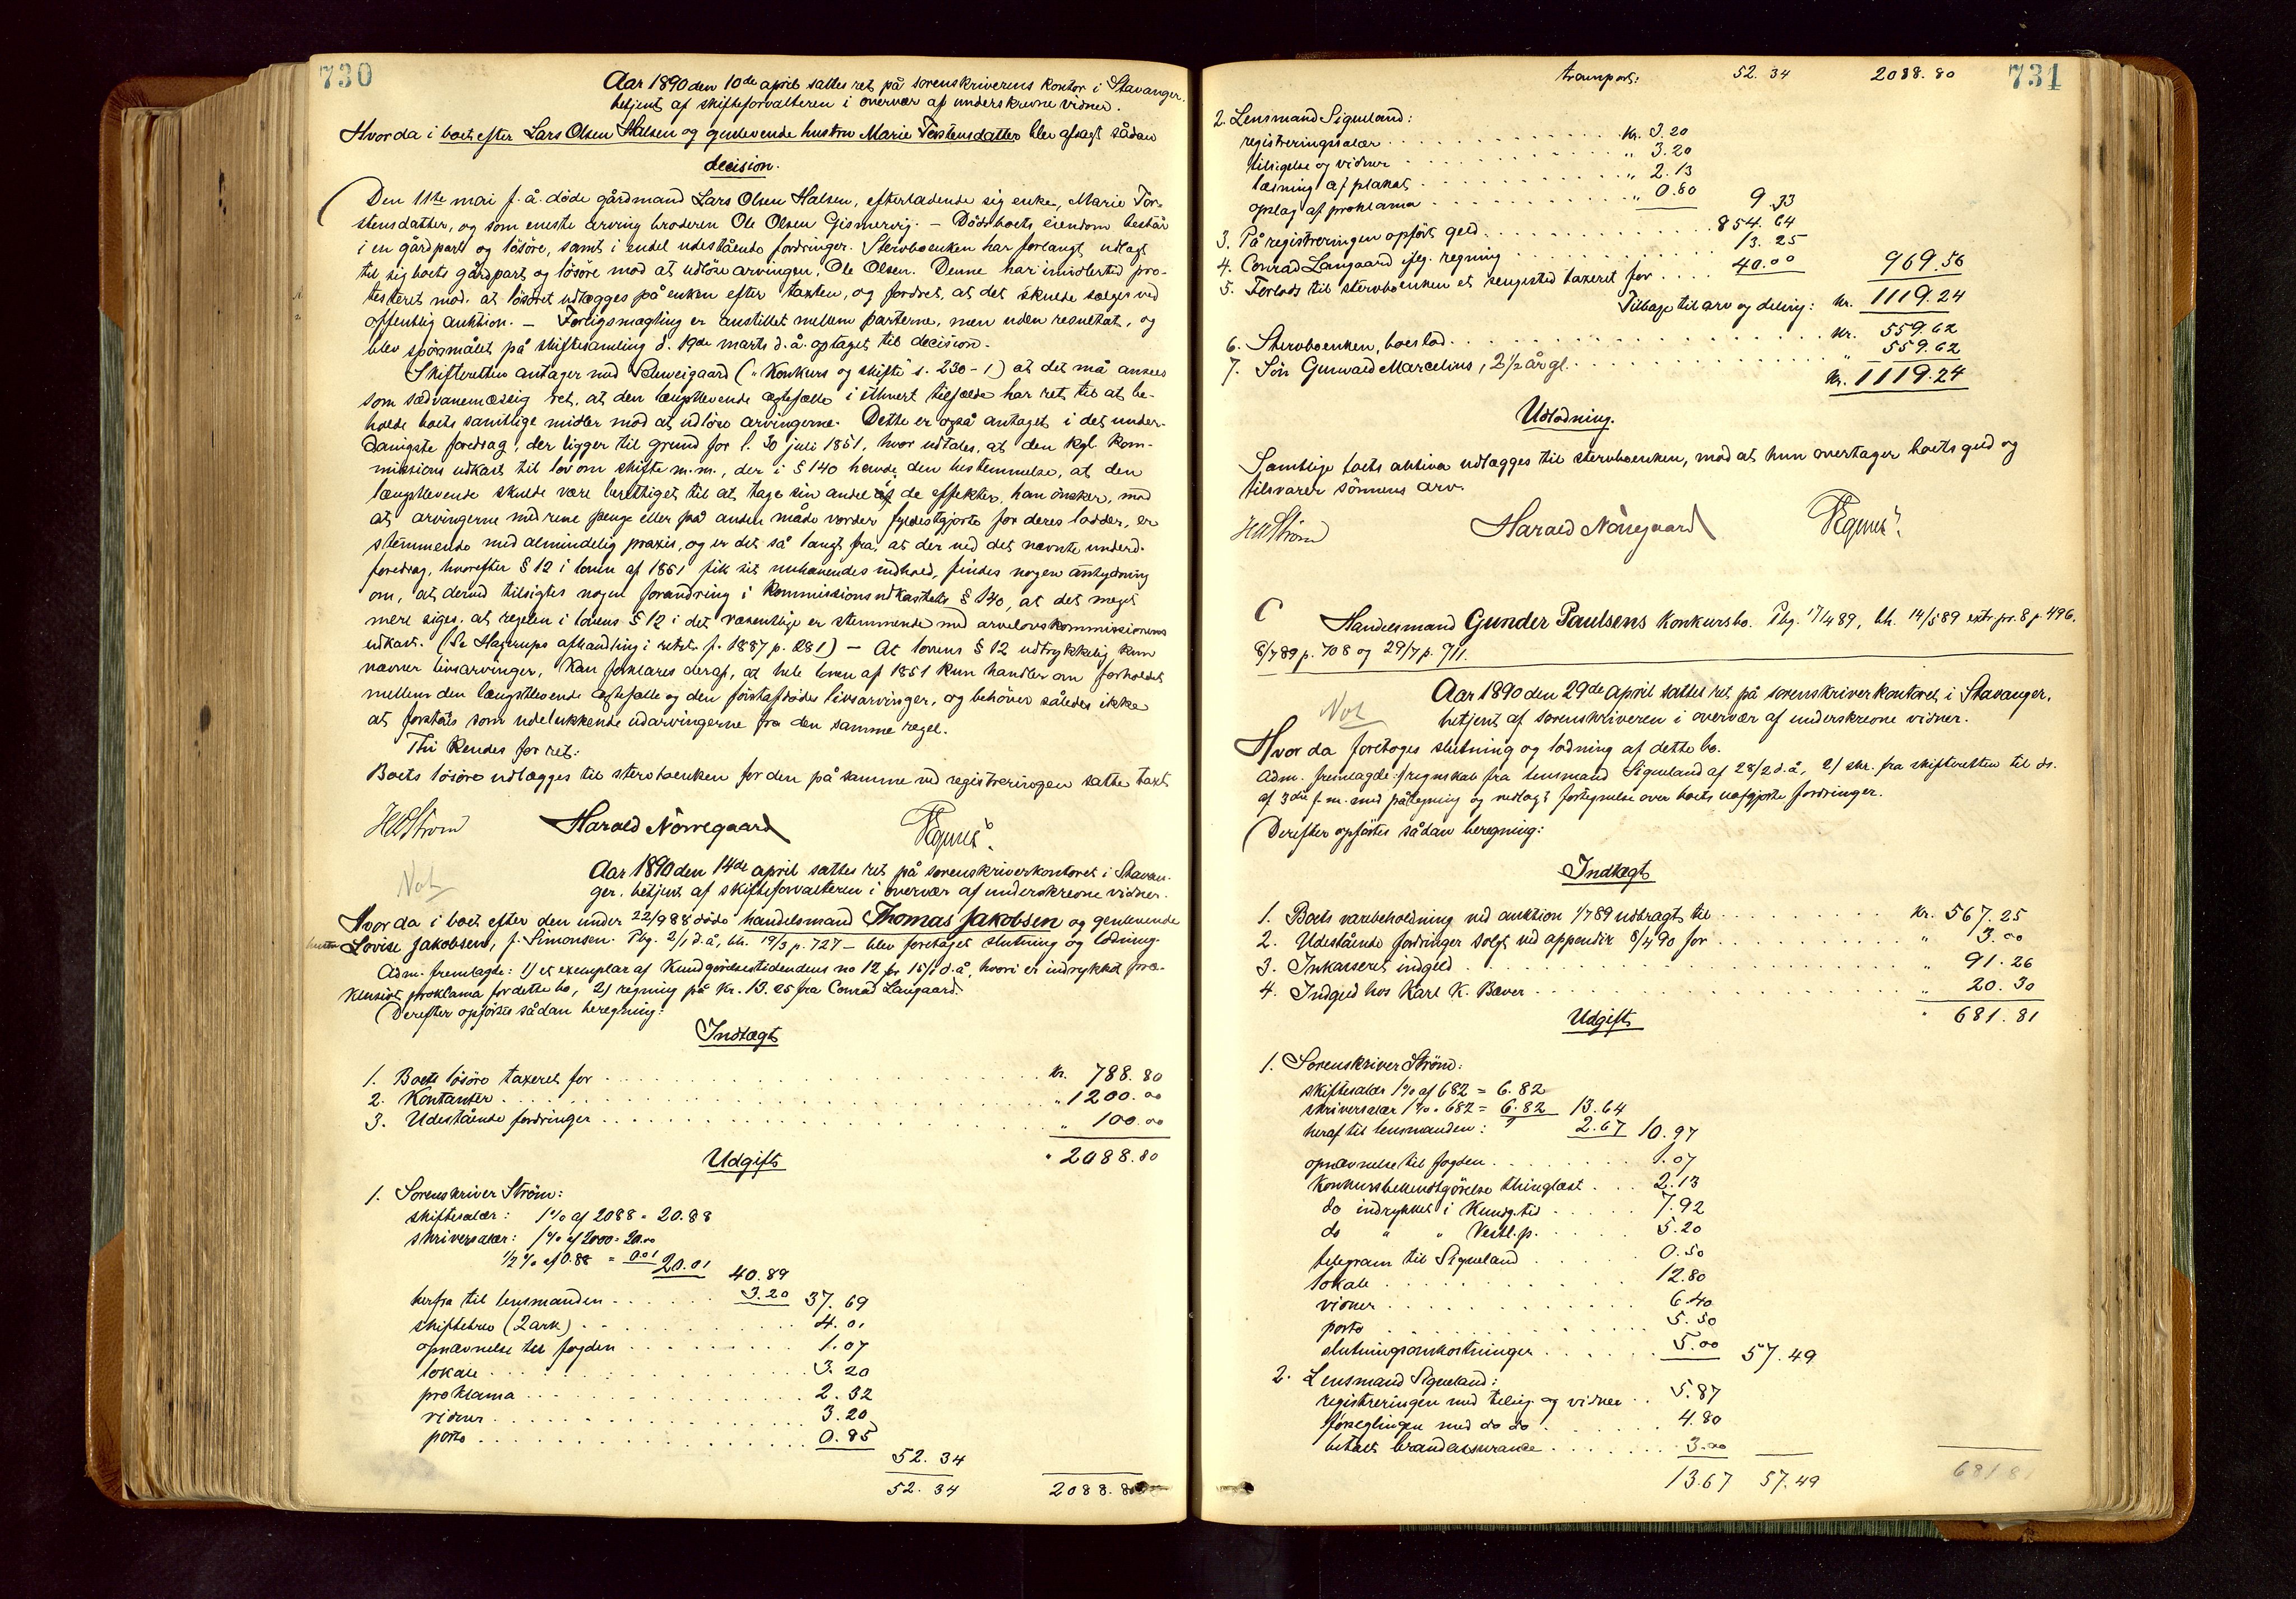 730
Aar 1890 den 10de april sattes ret på sorenskriverens kontor i Stavanger.
betjent af skifteforvalteren i overvær af underskrevne vidner.
Hvor da i boet efter Lars Olsen Halsen og gjenlevende hustru Marie Torstensdatter blev afsagt sådan
decision.
Den 11te mai f. å. døde gårdmand Lars Olsen Halsen, efterladende sig enke, Marie Tor-
stensdatter, og som eneste arving broderen Ole Olsen Gismervig. – Dødsboets eiendom består
i en gårdpart og løsøre, samt i endel udestående fordringer. Stervboenken har forlangt udlagt
til sig boets gårdpart og løsøre mod at udløse arvingen, Ole Olsen. Denne har imidlertid pro-
testeret mod, at løsøret udlægges på enken efter taxten, og fordret, at det skulde sælges ved
offentlig auktion. – Forligsmægling er anstillet mellem parterne, men uden resultat, og
blev spørsmålet på skiftesamling d. 19de marts d. å. optaget til decision.
Skifteretten antager med Schweigaard ("Konkurs og skifte" s. 230-1) at det må ansees
som sædvanemæssig ret, at den længstlevende ægtefælle i ethvert tilfælde har ret til at be-
holde boets samtlige midler mod at udløse arvingerne. Dette er også antaget i det under-
danigste foredrag, der ligger til grund for l. 30 juli 1851, hvor udtales, at den kgl. kom-
missions udkast til lov om skifte m. m., der i § 140 havde den bestemmelse, at den
længstlevende skulde være berettiget til at tage sin andel af de effekter, han ønsker, mod
at arvingerne med rene penge eller på anden måde vorder fyldestgjorte for deres lodder, er
stemmende med almindelig praxis, og er det så langt fra, at der ved det nævnte underd.
foredrag, hvorefter § 12 i loven af 1851 fik sit nuhavendes indhold, findes nogen antydning
om, at derved tilsigtes nogen forandring i kommissionsudkastets § 140, at det meget
mere siges, at regelen i lovens § 12 i det væsentlige er stemmende med arvelovskommissionens
udkast. (Se Hagerups afhandling i retst. f. 1887 p. 281) – At lovens § 12 udtrykkelig kun
nævner livsarvinger, kan forklares deraf, at hele loven af 1851 kun handler om forholdet
mellem den længstlevende ægtefælle og den førstafdødes livsarvinger, og behøver således ikke
at forståes som udelukkende udarvingerne fra den samme regel.
Thi kendes for ret:
Boets løsøre udlægges til stervboenken for den på samme ved registreringen satte taxt
HStrøm Harald Nørregaard
Not
Aar 1890 den 14de april sattes ret på sorenskriverkontoret i Stavan-
ger, betjent af skifteforvalteren i overvær af underskrevne vidner.
Hvor da i boet efter den under 22/9 88 døde handelsmand Thomas Jakobsen og genlevende
hustru Lovise Jakobsen, f. Simonsen. Pbg. 2/1 d. å, bh. 19/3 p. 727 – blev foretaget slutning og lodning.
Adm. fremlagde: 1) et exemplar af Kundgørelsestidendens no 12 for 15/1 d. å, hvori er indrykket præ-
klusivt proklama for dette bo, 2) regning på kr. 13.25 fra Conrad Langaard.
Derefter opførtes sådan beregning:
Indtægt
1. Boets løsøre taxeret for kr. 788.80
2. Kontanter " 1200.00
3. Udestående fordringer " 100.00
" 2088.80
Udgift
1. Sorenskriver Strøm:
skiftesalær: 1% af 2088 = 20.88
skriversalær: 1% af 2000 = 20.00
1/2 % af 0.88 = 0.01 20.01 40.89
herfra til lensmanden 3.20 37.69
skiftebrev (2 ark) 4.01
opnævnelse til fogden 1.07
lokale 3.20
proklama 2.32
vidner 3.20
porto 0.85
52.34
52.34 2088.80
transport: 52.34 2088.80 731
2. Lensmand Sigueland:
registreringssalær kr. 3.20
tilsigelse og vidner " 3.20
læsning af plakat " 2.13
opslag af proklama " 0.80 9.33
3. På registreringen opført gæld 854.64
4. Conrad Langaard iflg. regning 13.25
5. Forlods til stervboenken et sengested taxeret for 40.00 969.56
Tilbage til arv og deling: kr. 1119.24
6. Stervboenken, boeslod kr. 559.62
7. Søn Gunvald Marcelius, 2 1/2 år gl. " 559.62
kr. 1119.24
Udlodning.
Samtlige boets aktiva udlægges til stervboenken, mod at hun overtager boets gæld og
tilsvarer sønnens arv.
HStrøm Harald Nørregaard
C Handelsmand Gunder Paulsens konkursbo. Pbg. 17/4 89, bh. 14/5 89 extr. pr. 8 p. 496.
8/7 89 p. 708 og 29/7 p. 711.
Not
Aar 1890 den 29de April sattes ret på sorenskriverkontoret i Stavanger,
betjent af sorenskriveren i overvær af underskrevne vidner.
Hvor da foretoges slutning og lodning af dette bo.
Adm. fremlagde: 1) regnskab fra lensmand Sigueland af 28/2 d. å, 2) skr. fra skifteretten til ds.
af 3die f. m. med påtegning og vedlagt fortegnelse over boets uafgjorte fordringer.
Derefter opførtes sådan beregning:
Indtægt
1. Boets varebeholdning ved auktion 1/7 89 udbragt til kr. 567.25
2. Udestående fordringer solgt ved appendix 8/4 90 for " 3.00
3. Inkasseret indgæld " 91.26
4. Indgæld hos Karl K. Bæver " 20.30
" 681.81
Udgift
1. Sorenskriver Strøm:
skiftesalær 1% af 682 = 6.82
skriversalær 1% " 682 = 6.82 13.64
heraf til lensmanden: 2.67 10.97
opnævnelse til fogden 1.07
konkursbekendtgørelse thinglæst 2.13
do indrykket i Kundg.tid 7.92
do " " Vestl.p. 5.20
telegram til Sigueland 0.50
lokale 12.80
vidner 6.40
porto 5.50
slutningsomkostninger 5.00 57.49
2. Lensmand Sigueland:
registreringen med tilsig. og vidner 5.87
forseglingen med do do 4.80
betalt brandassurance 3.00
13.67 57.49 681.81